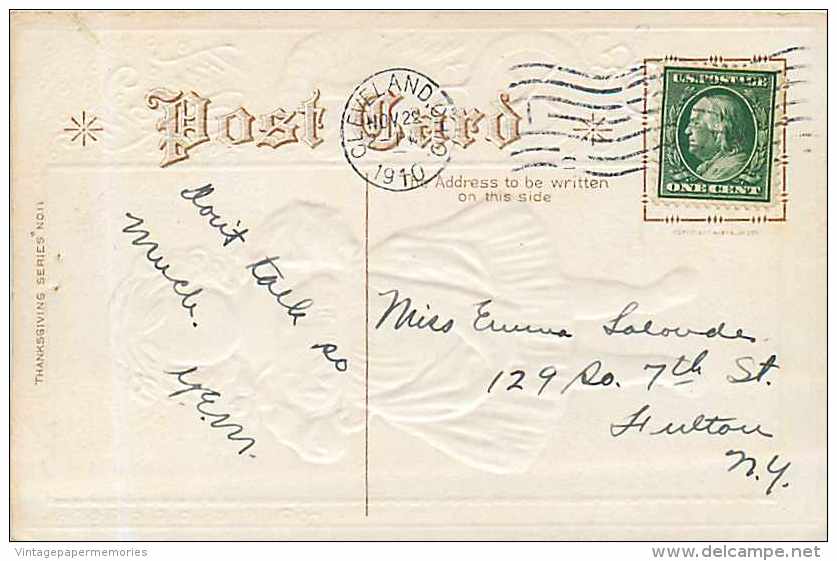 Post Card
CLEVELAND, OHIO
NOV 22
1910
U.S. POSTAGE
ONE CENT
The Address to be written
on this side
THANKSGIVING SERIES NO.11
Don't talk so
much.
Miss Emma Lalonde.
129 So. 7th St.
Fulton
N.Y.
Vintagepapermemories
delcampe.net